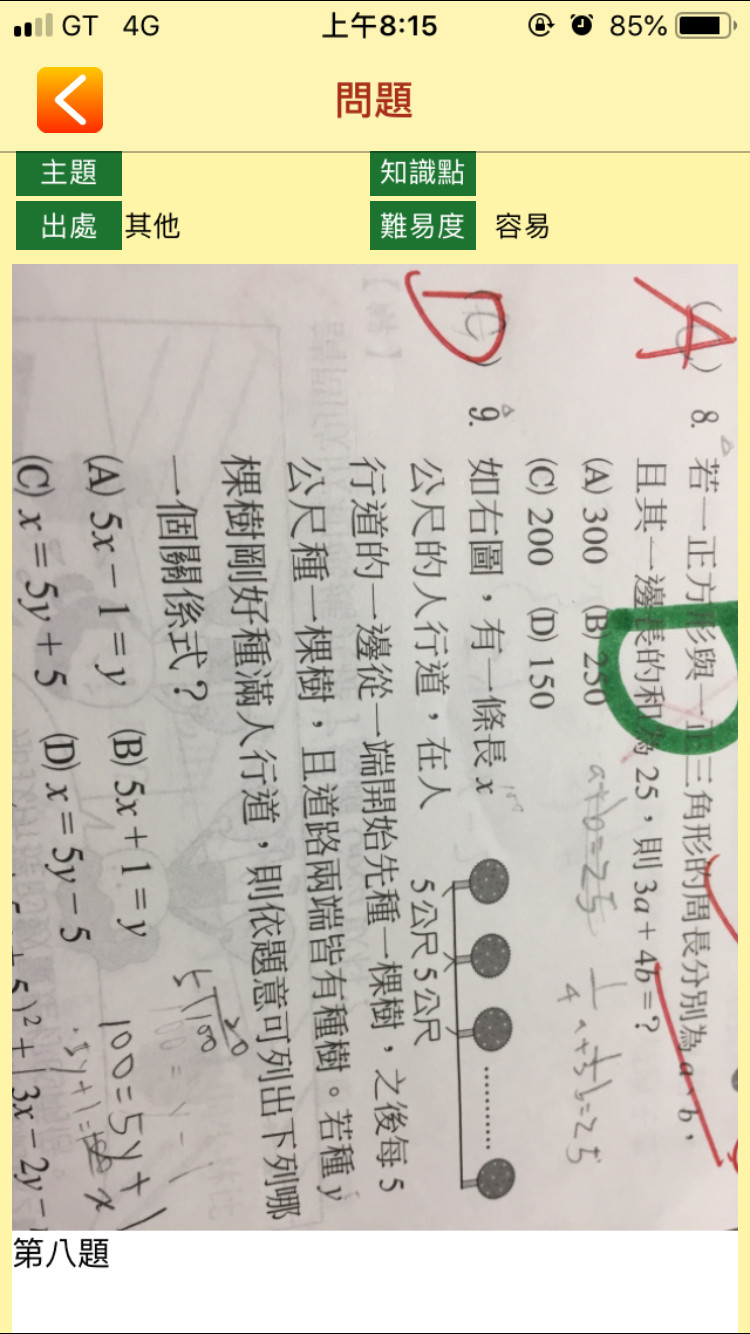 GT 4G 上午8:15 85%
問題
主題 知識點
出處 其他 難易度 容易
A
8. 若一正方形與一正三角形的周長分別為 a、b，
且其一邊長的和為 25，則 3a + 4b = ?
(A) 300 (B) 250
(C) 200 (D) 150
a + b = 25
1/4 a + 1/3 b = 25
D
9. 如右圖，有一條長 x
公尺的人行道，在人
行道的一邊從一端開始先種一棵樹，之後每 5
公尺種一棵樹，且道路兩端皆有種樹。若種 y
棵樹剛好種滿人行道，則依題意可列出下列哪
一個關係式？
5 公尺 5 公尺
(A) 5x − 1 = y (B) 5x + 1 = y
(C) x = 5y + 5 (D) x = 5y − 5
20
5 100
100 = 5y + 1
+ 5)² + | 3x − 2y −
第八題